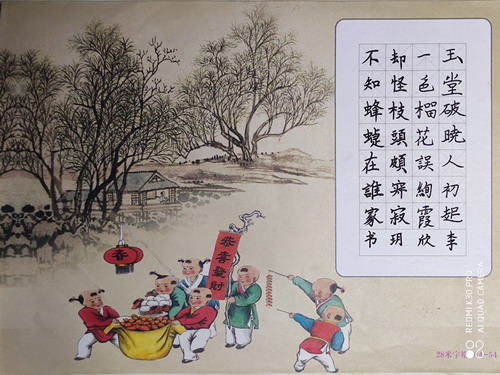 玉堂破曉人初起李
一色榴花誤絢霞欣
却怪枝頭頗寂玥
不知蜂蝶在誰家书
恭喜發財
春
28米字格
-54
REDMI K30 PRO
AI QUAD CAMERA